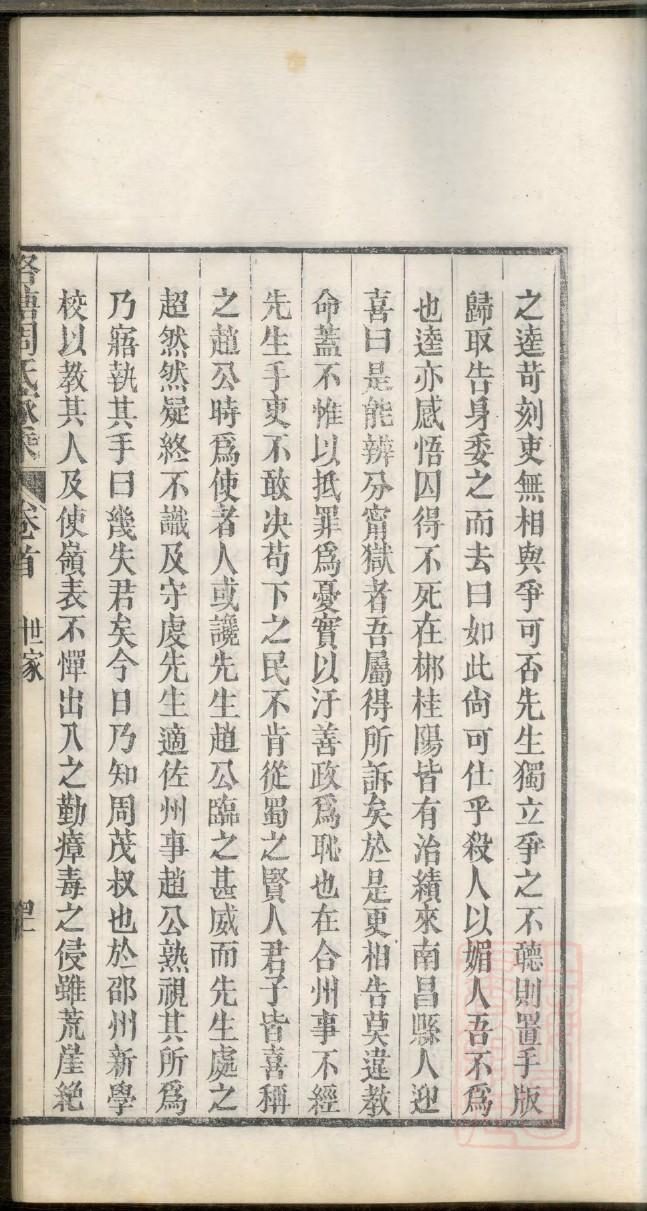 之逵苛刻吏無相與爭可否先生獨立爭之不聽則置手版
歸取告身委之而去曰如此尙可仕乎殺人以媚人吾不爲
也逵亦感悟囚得不死在郴桂陽皆有治績來南昌縣人迎
喜曰是能辨分甯獄者吾屬得所訴矣於是更相告莫違教
命蓋不惟以抵罪爲憂實以汙善政爲恥也在合州事不經
先生手吏不敢决苟下之民不肯從蜀之賢人君子皆喜稱
之趙公時爲使者人或讒先生趙公臨之甚威而先生處之
超然然疑終不識及守虔先生適佐州事趙公熟視其所爲
乃寤執其手曰幾失君矣今日乃知周茂叔也於邵州新學
校以教其人及使嶺表不憚出入之勤瘴毒之侵雖荒崖絶
周氏家乘 卷首 世家